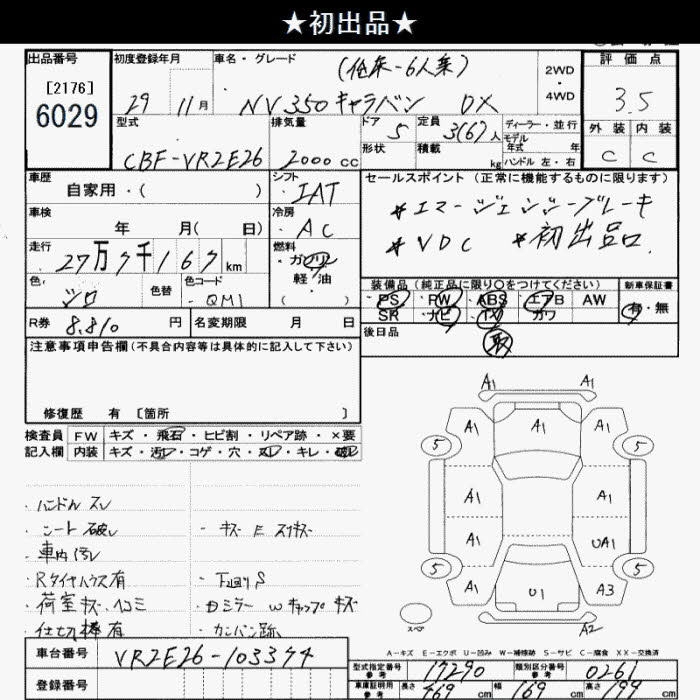 ★初出品★
出品番号
[2176]
6029
初度登録年月
29 11月
車名・グレード
(低床-6人乗)
NV350キャラバン DX
2WD
・
4WD
評価点
3.5
外装 内装
C C
型式
CBF-VR2E26
排気量
2000cc
ドア
5
定員
3(6)人
形状
積載
kg
ディーラー・並行
モデル年式 年
ハンドル 左・右
車歴
自家用・( )
シフト
IAT
セールスポイント (正常に機能するものに限ります)
*エマージェンシーブレーキ
*VDC *初出品.
車検
年 月( 日)
冷房
AC
走行
27万7千167km
燃料
・ガソリン
軽・油
( )
色
シロ
色替
色コード
QM1
装備品 (純正品に限り○をつけてください)
・PS・PW・ABS・エアB AW
SR ・ナビ・ ・カワ
新車保証書
有・無
R券
8,810円
名変期限 月 日
後日品
取
注意事項申告欄(不具合内容等は具体的に記入して下さい)
修復歴 有 〔箇所 〕
検査員
記入欄
FW キズ・飛石・ヒビ割・リペア跡・×要
内装 キズ・汚れ・コゲ・穴・スレ・キレ・破れ
・ハンドルスレ
・シート破レ
・車内汚レ
・Rタイヤハウス有
・荷室キズ・凹ミ
・仕切棒有
・キズ E スリキズ
・下回りS
・カンバン跡
A1 A1
A1 A1 A1
5 5
A1 A1
A1 UA1
5 5
A1 U1 A3
A2
スペア
A-キズ E-エクボ U-凹み W-補修跡 S-サビ C-腐食 XX-交換済
車台番号
VR2E26-103374
登録番号
型式指定番号
参考
17290
類別区分番号
参考
0261
車庫証明用
参考
長さ 469cm 幅 169cm 高さ 199cm